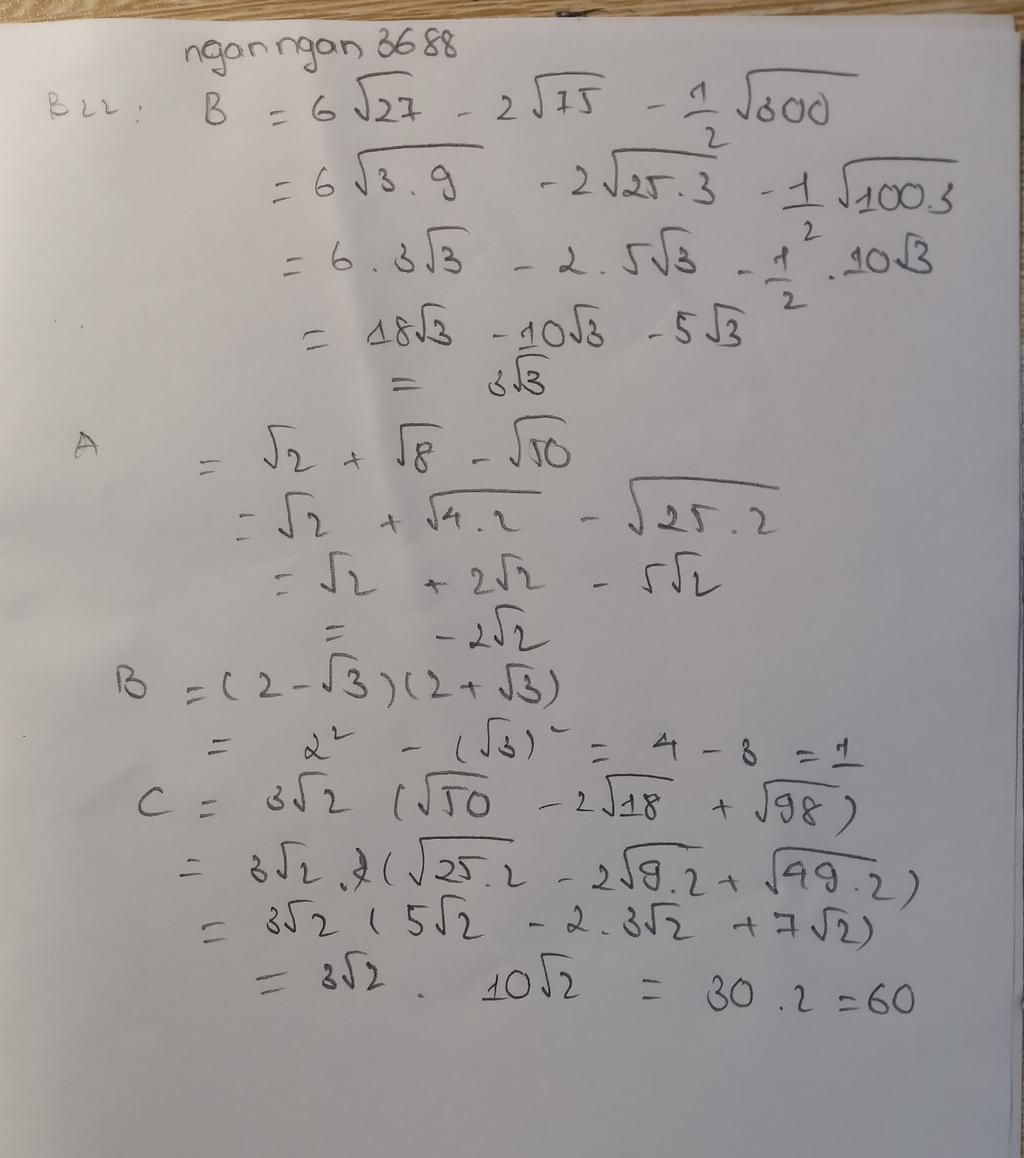 nganngan 3688
B22: B = 6√27 - 2√75 - 1/2 √300
= 6√3.9 - 2√25.3 - 1/2 √100.3
= 6.3√3 - 2.5√3 - 1/2 .10√3
= 18√3 - 10√3 - 5√3
= 3√3
A = √2 + √8 - √50
= √2 + √4.2 - √25.2
= √2 + 2√2 - 5√2
= -2√2
B = (2-√3)(2+√3)
= 2² - (√3)² = 4 - 3 = 1
C = 3√2 (√50 - 2√18 + √98)
= 3√2 . (√25.2 - 2√9.2 + √49.2)
= 3√2 (5√2 - 2.3√2 + 7√2)
= 3√2 . 10√2 = 30.2 = 60